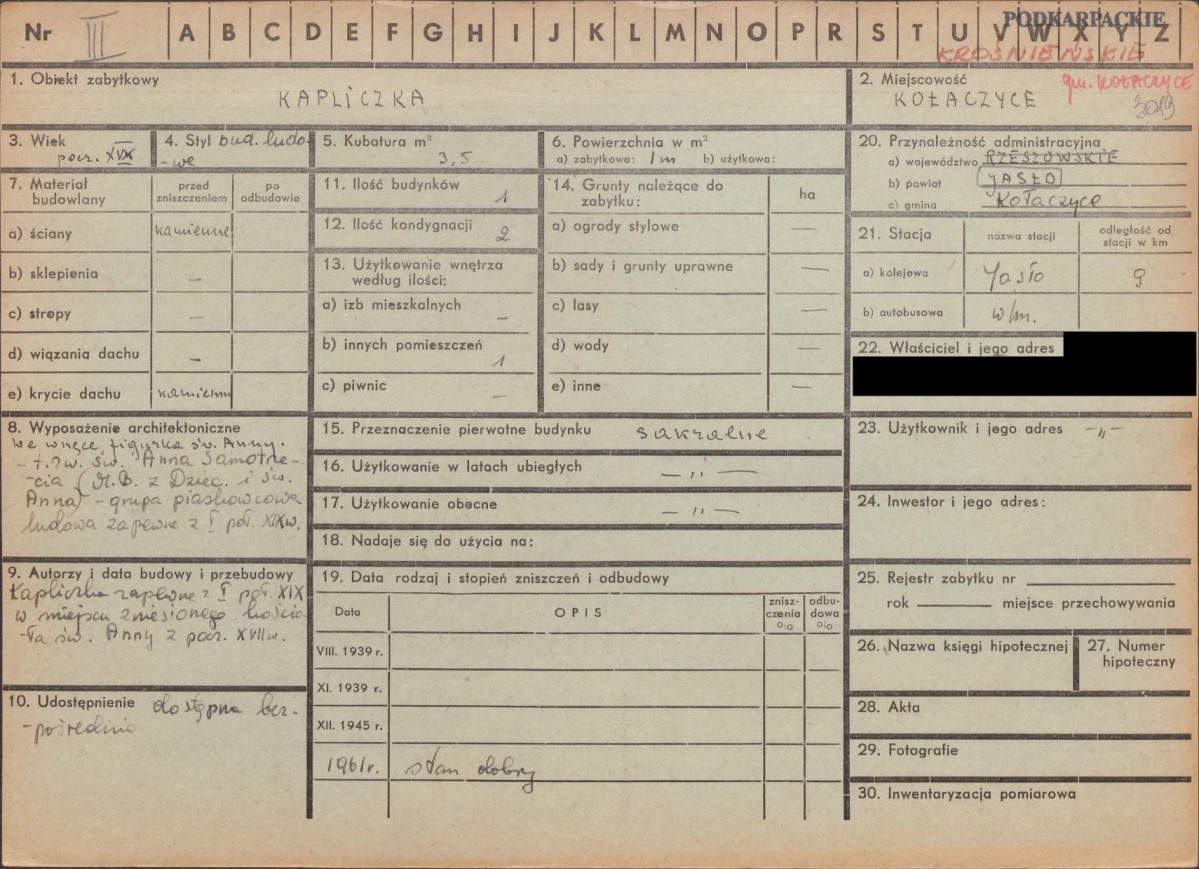 Nr III A B C D E F G H I J K L M N O P R S T U V W X Y Z
PODKARPACKIE
KROŚNIEŃSKIE
gm. KOŁACZYCE
3013
1. Obiekt zabytkowy
KAPLICZKA
2. Miejscowość
KOŁACZYCE
3. Wiek
pocz. XIX
4. Styl bud. ludo-
-we
5. Kubatura m³
3,5
6. Powierzchnia w m²
a) zabytkowa: 1 m b) użytkowa:
7. Materiał budowlany
przed zniszczeniem
po odbudowie
a) ściany kamienne
b) sklepienia —
c) stropy —
d) wiązania dachu —
e) krycie dachu kamienne
8. Wyposażenie architektoniczne
We wnęce figurka św. Anny.
- t.zw. św. Anna Samotrze-
-cia (M.B. z Dziec. i św.
Anna) - grupa piaskowcowa
ludowa zapewne z I poł. XIX w.
9. Autorzy i data budowy i przebudowy
Kapliczka zapewne z I poł. XIX
w miejscu zniesionego kościo-
-ła św. Anny z pocz. XVII w.
10. Udostępnienie dostępna bez-
-pośrednio
11. Ilość budynków 1
12. Ilość kondygnacji 2
13. Użytkowanie wnętrza
według ilości:
a) izb mieszkalnych —
b) innych pomieszczeń 1
c) piwnic —
14. Grunty należące do
zabytku:
ha
a) ogrody stylowe —
b) sady i grunty uprawne —
c) lasy —
d) wody —
e) inne —
15. Przeznaczenie pierwotne budynku sakralne
16. Użytkowanie w latach ubiegłych — „ —
17. Użytkowanie obecne — „ —
18. Nadaje się do użycia na:
19. Data rodzaj i stopień zniszczeń i odbudowy
Data
OPIS
znisz-
czenia
%
odbu-
dowa
%
VIII. 1939 r.
XI. 1939 r.
XII. 1945 r.
1961 r. stan dobry
20. Przynależność administracyjna
a) województwo RZESZOWSKIE
b) powiat JASŁO
c) gmina Kołaczyce
21. Stacja
nazwa stacji
odległość od
stacji w km
a) kolejowa Jasło 9
b) autobusowa w/m.
22. Właściciel i jego adres
23. Użytkownik i jego adres -„-
24. Inwestor i jego adres:
25. Rejestr zabytku nr
rok miejsce przechowywania
26. Nazwa księgi hipotecznej
27. Numer
hipoteczny
28. Akta
29. Fotografie
30. Inwentaryzacja pomiarowa